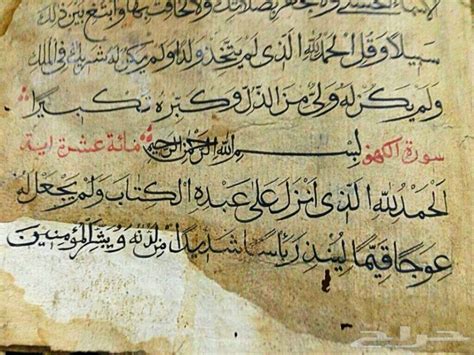 الاسماء الحسنى ولا تجهر بصلاتك ولا تخافت بها وابتغ بين ذلك
سبيلا وقل الحمد لله الذي لم يتخذ ولدا ولم يكن له شريك في الملك
ولم يكن له ولي من الذل وكبره تكبيرا
سورة الكهف بسم الله الرحمن الرحيم مائة عشرة اية
الحمد لله الذي انزل على عبده الكتاب ولم يجعل له
عوجا قيما لينذر باسا شديدا من لدنه ويبشر المؤمنين
حراج